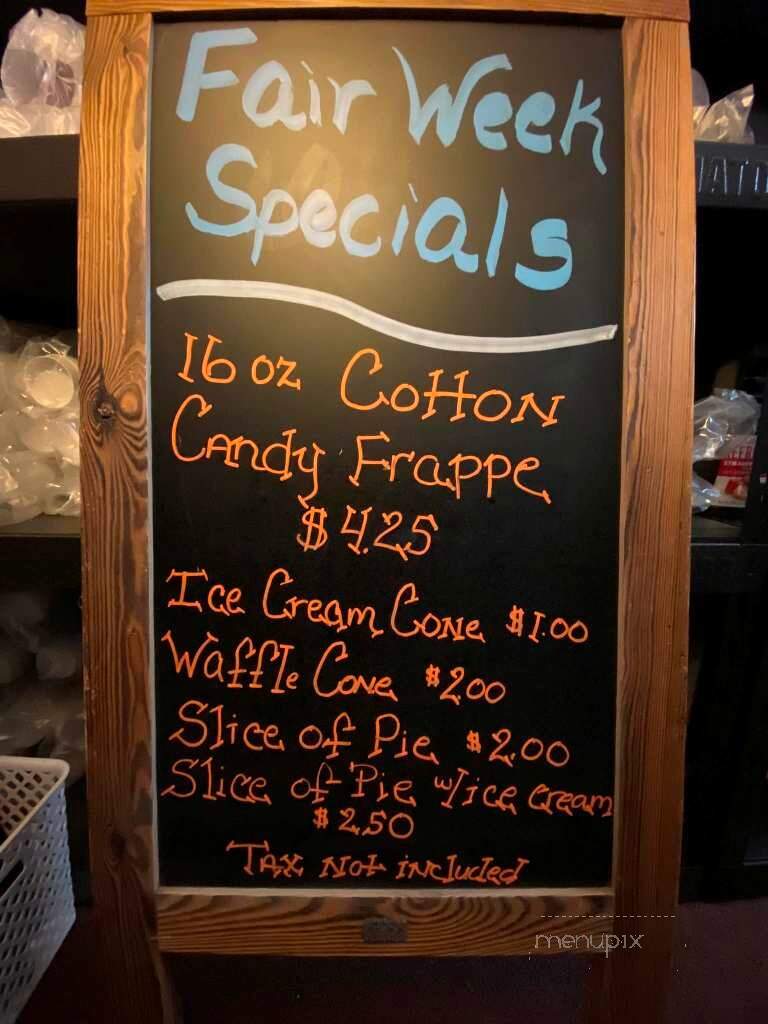 Fair Week
Specials
16 oz Cotton
Candy Frappe
$4.25
Ice Cream Cone $1.00
Waffle Cone $2.00
Slice of Pie $2.00
Slice of Pie w/ice cream
$2.50
Tax Not included
menupix